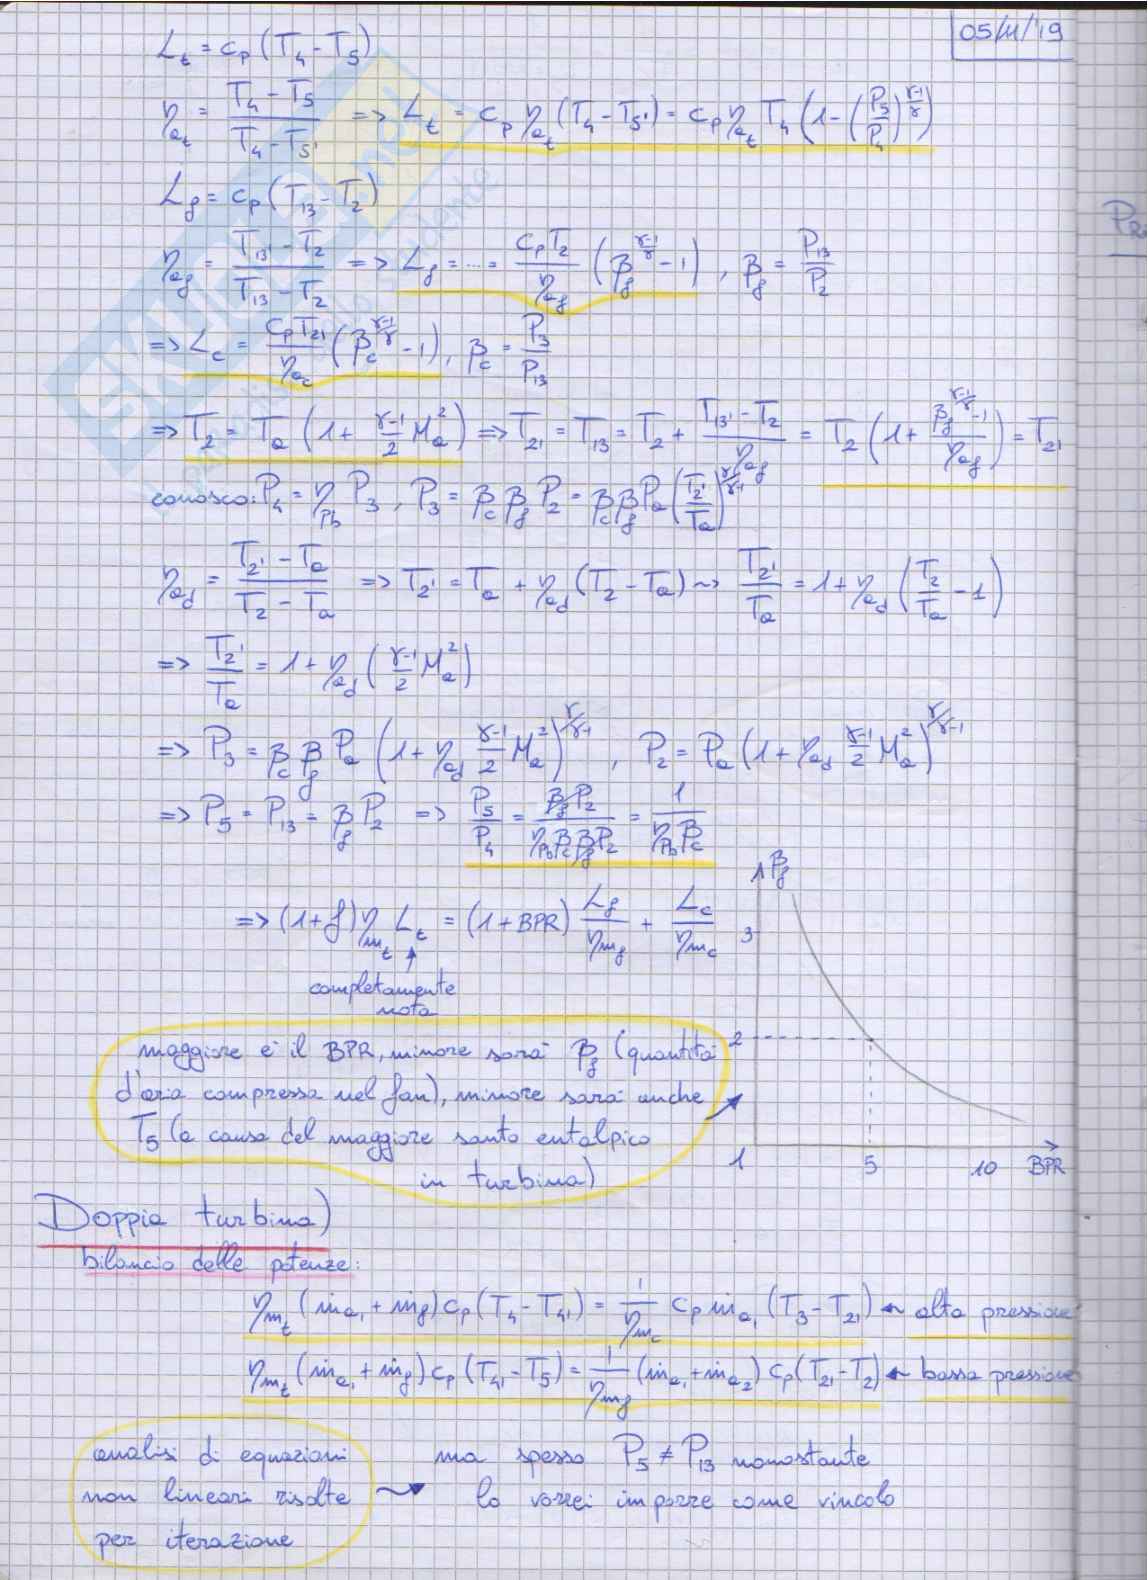 05/11/'19
L_t = c_p (T_4 - T_5)
η_{a_t} = (T_4 - T_5)/(T_4 - T_{5'}) => L_t = c_p η_{a_t} (T_4 - T_{5'}) = c_p η_{a_t} T_4 (1 - (P_5/P_4)^{(γ-1)/γ})
L_f = c_p (T_{13} - T_2)
η_{a_f} = (T_{13'} - T_2)/(T_{13} - T_2) => L_f = ... = (c_p T_2)/η_{a_f} (β_f^{(γ-1)/γ} - 1) , β_f = P_{13}/P_2
=> L_c = (c_p T_{21})/η_{a_c} (β_c^{(γ-1)/γ} - 1) , β_c = P_3/P_{13}
=> T_2 = T_a (1 + (γ-1)/2 M_a^2) => T_{21} = T_{13} = T_2 + (T_{13'} - T_2)/η_{a_f} = T_2 (1 + (β_f^{(γ-1)/γ} - 1)/η_{a_f}) = T_{21}
conosco: P_4 = η_{pb} P_3 , P_3 = β_c β_f P_2 = β_c β_f P_a (T_{2'}/T_a)^{γ/(γ-1)}
η_{a_d} = (T_{2'} - T_a)/(T_2 - T_a) => T_{2'} = T_a + η_{a_d} (T_2 - T_a) ~> T_{2'}/T_a = 1 + η_{a_d} (T_2/T_a - 1)
=> T_{2'}/T_a = 1 + η_{a_d} ((γ-1)/2 M_a^2)
=> P_3 = β_c β_f P_a (1 + η_{a_d} (γ-1)/2 M_a^2)^{γ/(γ-1)} , P_2 = P_a (1 + η_{a_d} (γ-1)/2 M_a^2)^{γ/(γ-1)}
=> P_5 = P_{13} = β_f P_2 => P_5/P_4 = (β_f P_2)/(η_{pb} β_c β_f P_2) = 1/(η_{pb} β_c)
=> (1+f) η_{m_t} L_t = (1+BPR) L_f/η_{m_f} + L_c/η_{m_c}
completamente
nota
β_f
3
2
1
5
10
BPR
maggiore è il BPR, minore sarà β_f (quantità
d'aria compressa nel fan), minore sarà anche
T_5 (a causa del maggiore salto entalpico
in turbina)
Doppia turbina)
bilancio delle potenze:
η_{m_t} (ṁ_{a_1} + ṁ_f) c_p (T_4 - T_{41}) = 1/η_{m_c} c_p ṁ_{a_1} (T_3 - T_{21}) ← alta pressione
η_{m_t} (ṁ_{a_1} + ṁ_f) c_p (T_{41} - T_5) = 1/η_{m_f} (ṁ_{a_1} + ṁ_{a_2}) c_p (T_{21} - T_2) ← bassa pressione
analisi di equazioni
non lineari risolte
per iterazione
ma spesso P_5 ≠ P_{13} nonostante
lo vorrei imporre come vincolo